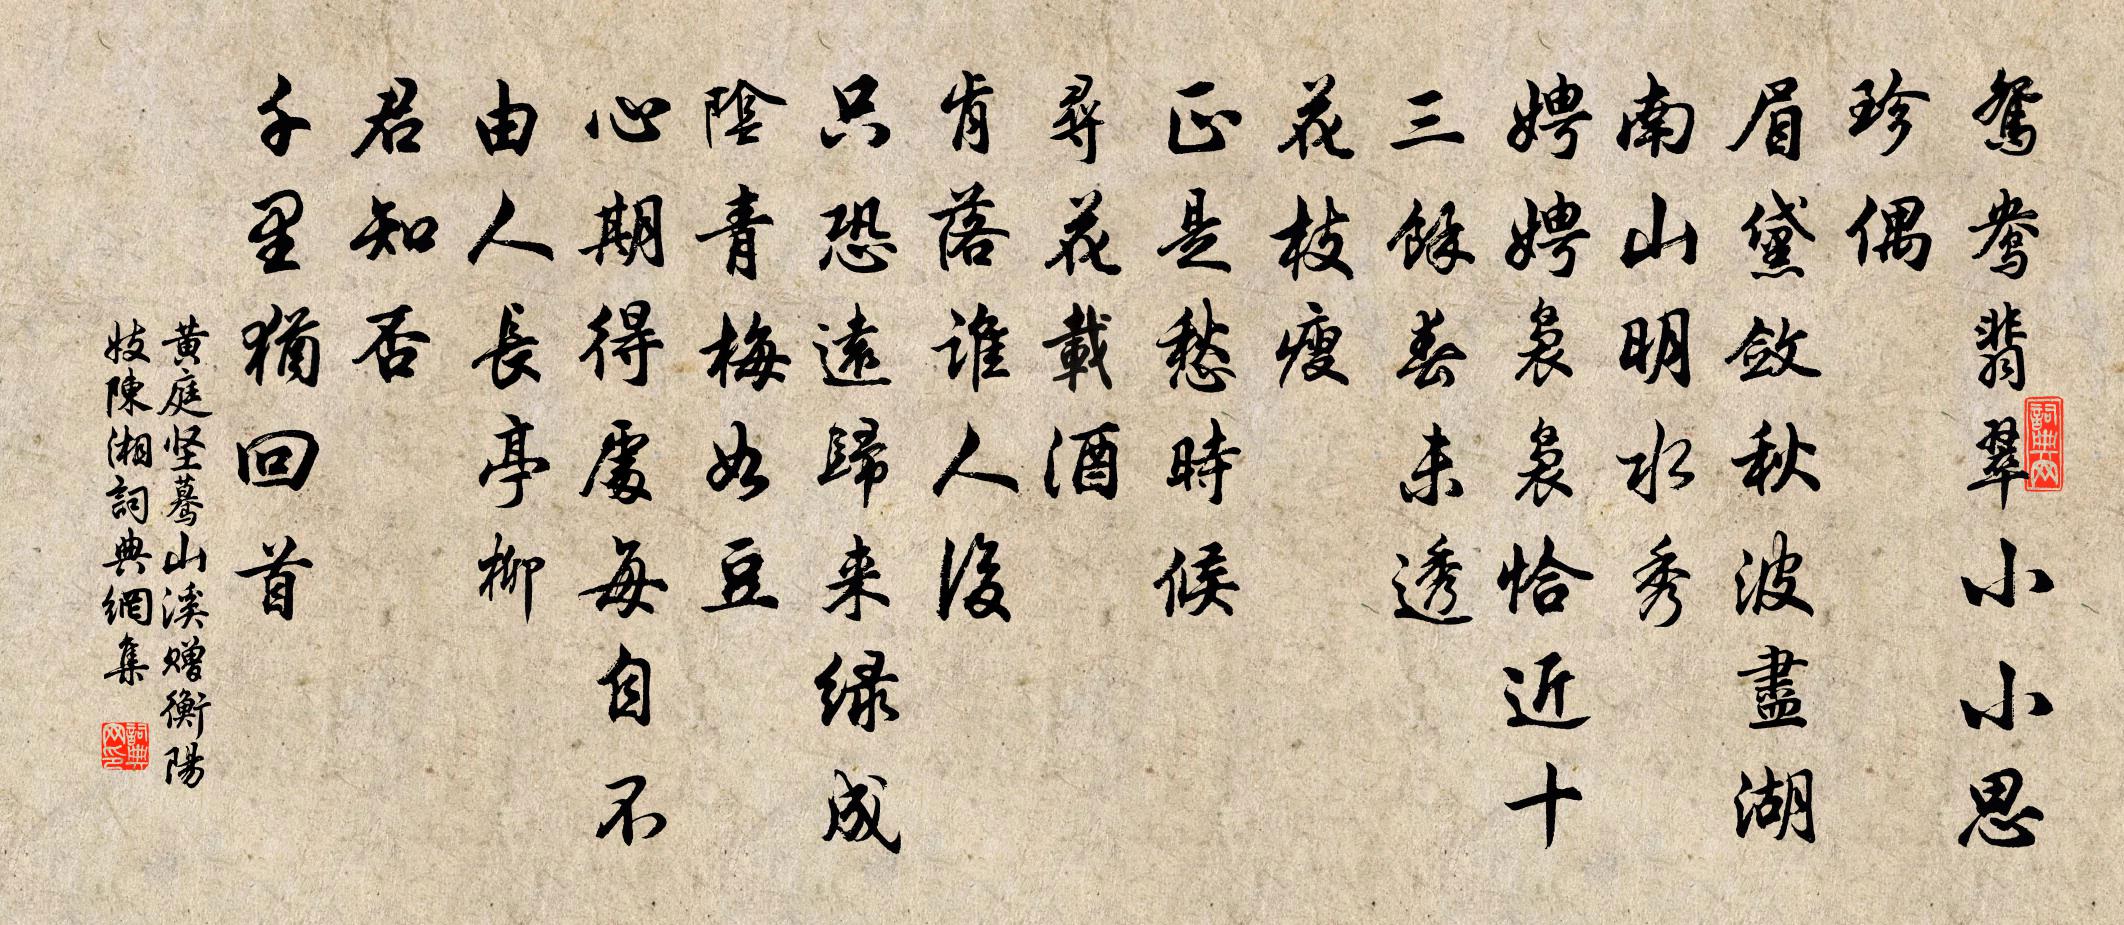 鴛鴦翡翠小小思
珍偶
眉黛斂秋波盡湖
南山明水秀
娉娉裊裊恰近十
三餘春未透
花枝瘦
正是愁時候
尋花載酒
肯落誰人後
只恐遠歸来緑成
陰青梅如豆
心期得處每自不
由人長亭柳
君知否
千里猶回首
黄庭坚驀山溪赠衡陽
妓陳湘詞典網集
詞典网
詞典网印